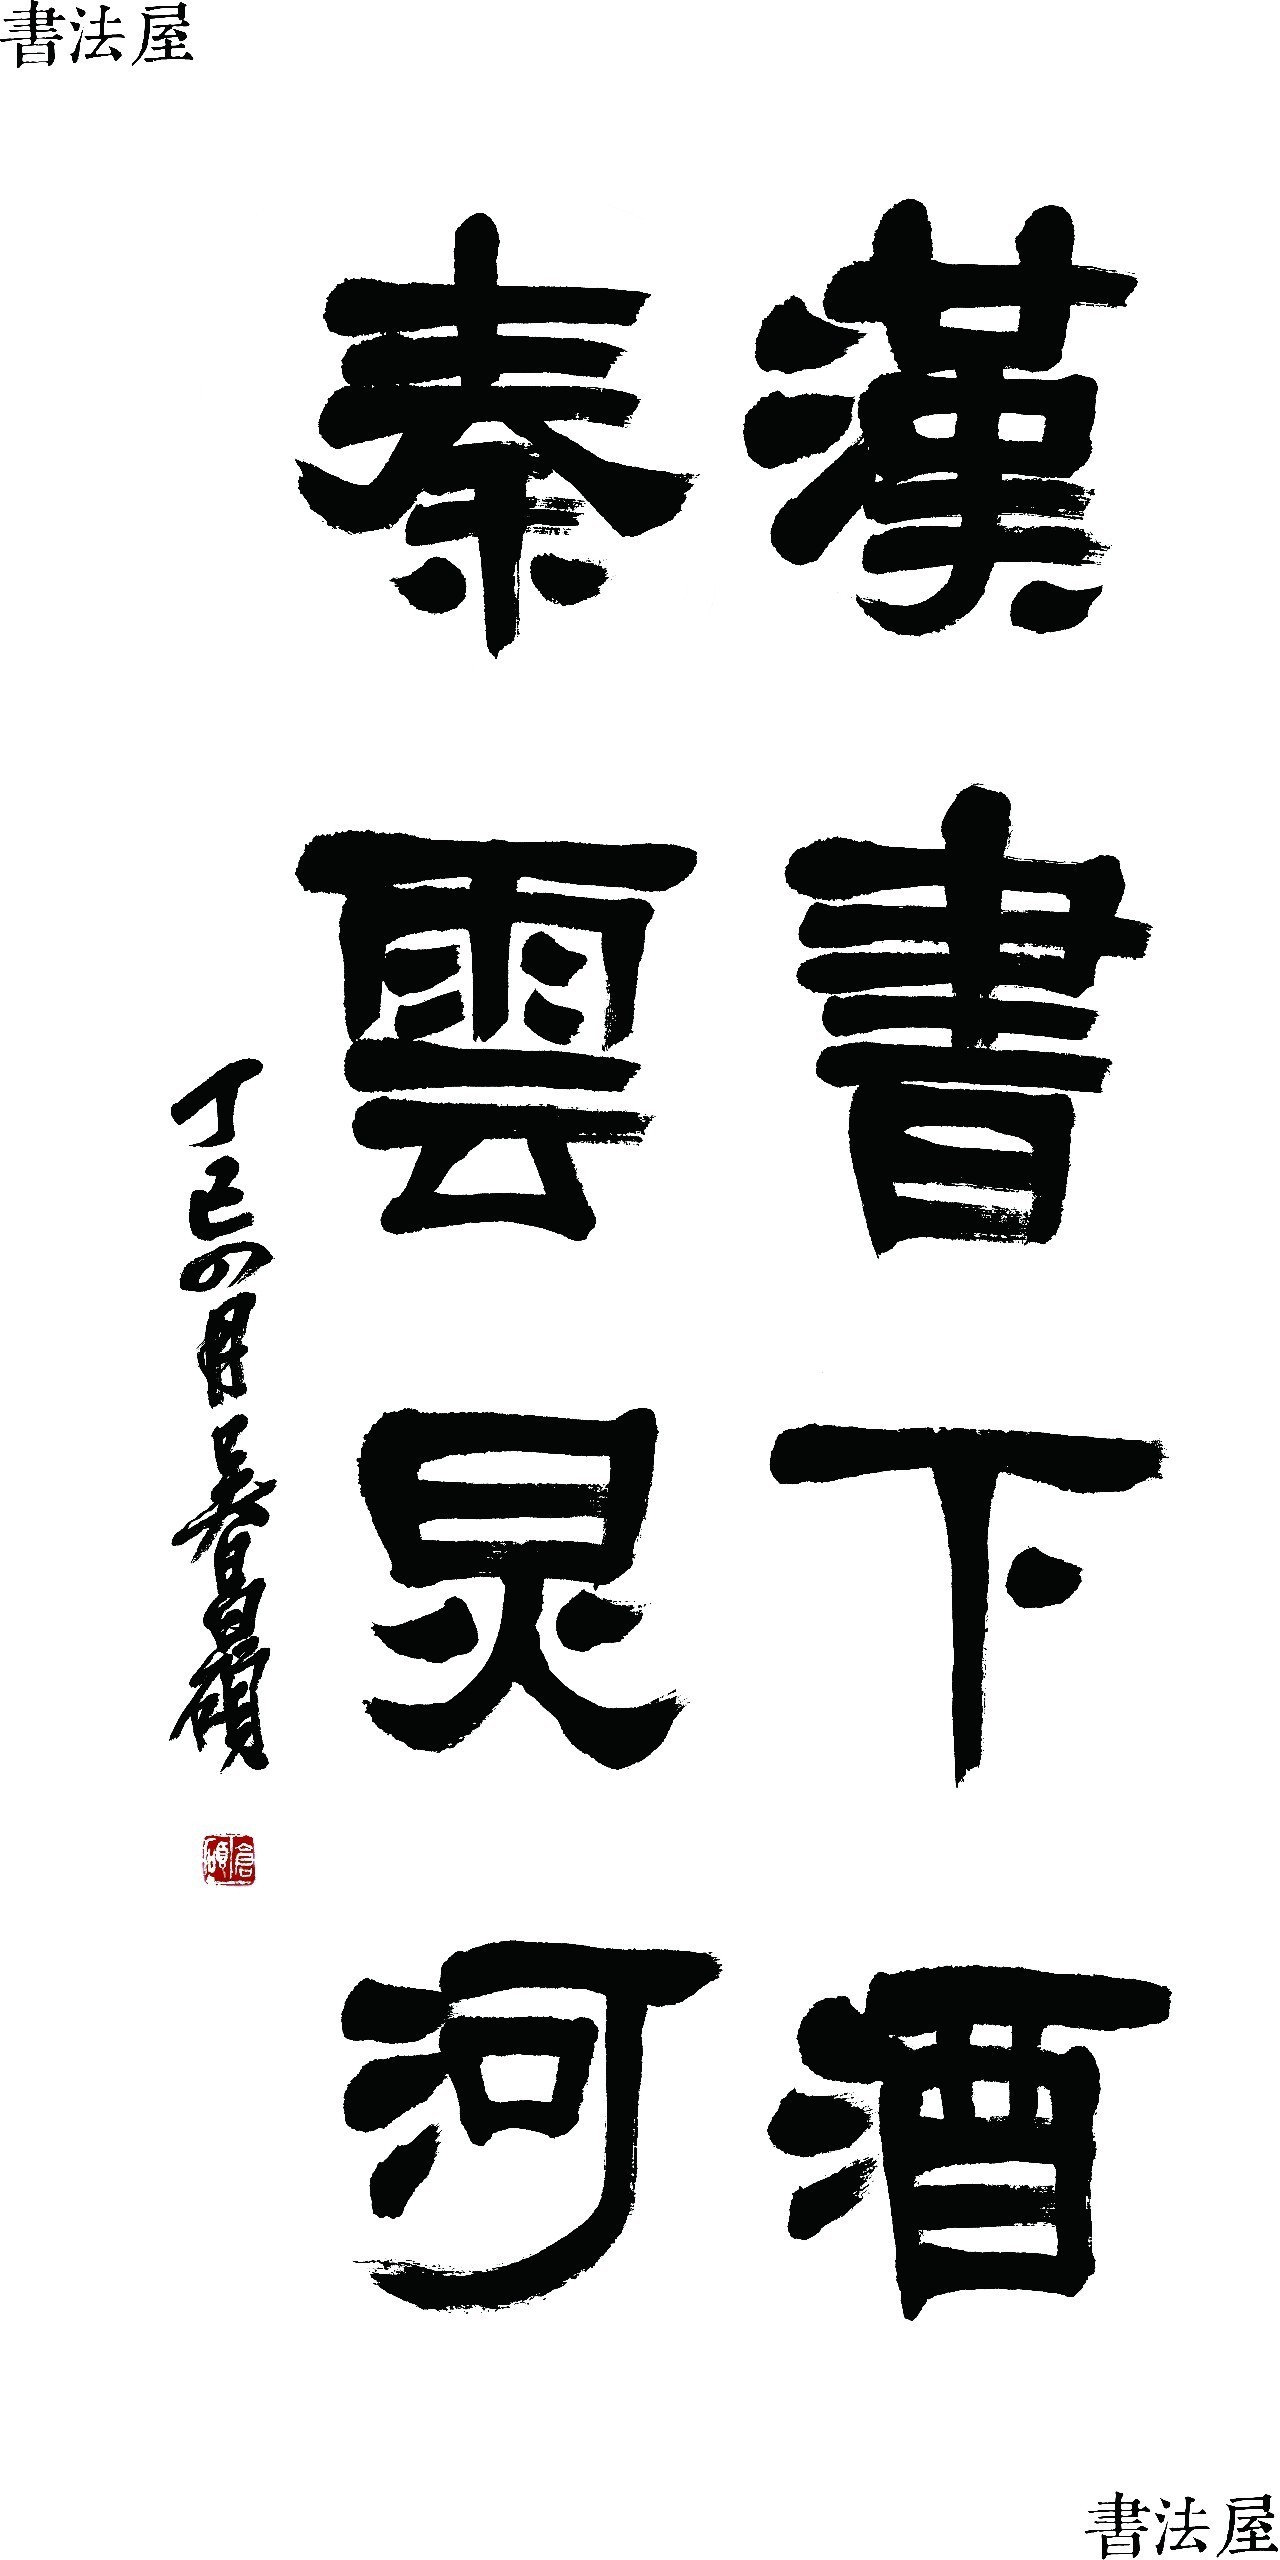 書法屋
漢書下酒
秦雲炅河
丁巳四月吳昌碩
倉碩
書法屋